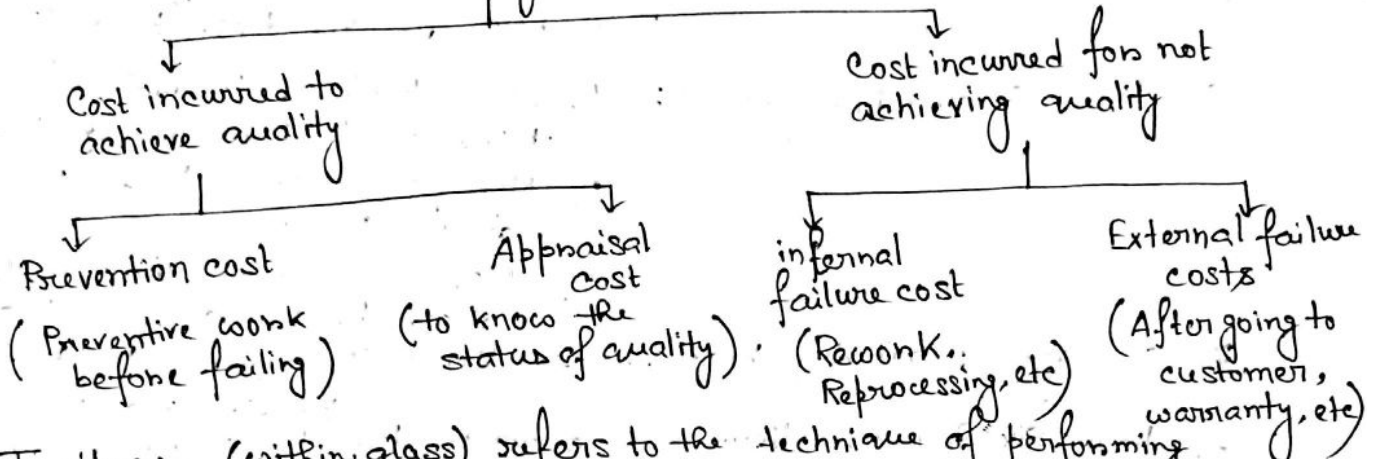 Cost incurred to
achieve quality
Cost incurred for not
achieving quality
Prevention cost
(Preventive work
before failing)
Appraisal
cost
(to know the
status of quality).
internal
failure cost
(Rework,
Reprocessing, etc)
External failure
costs
(After going to
customer,
warranty, etc)
(within glass) refers to the technique of performing